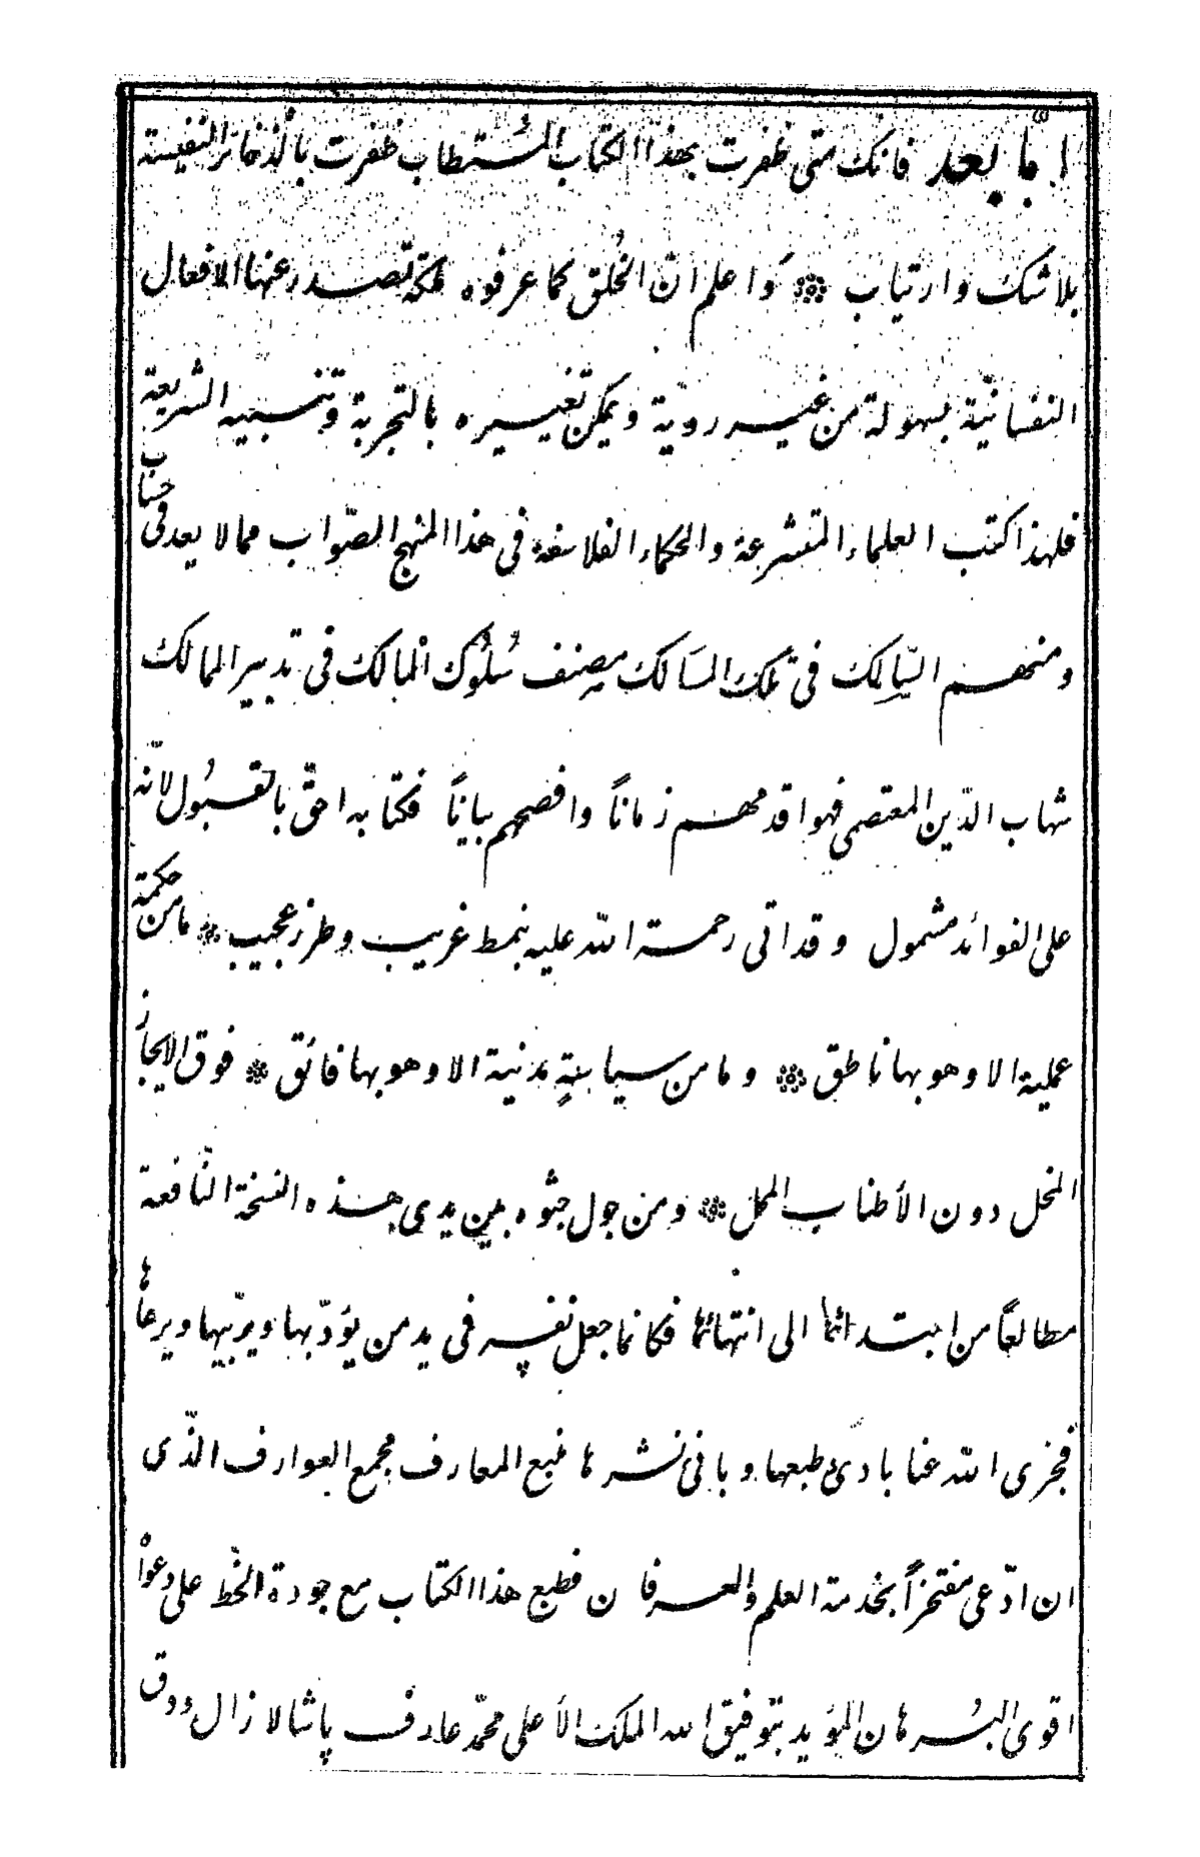 امّا بعد فانك متى ظفرت بهذا الكتاب المُستطاب ظفرت بالذخائر النفيسة
بلا شك وارتياب ❊ وَاعلم انّ الخُلق كما عرفوه ملكة تصدر عنها الافعال
النفسانيّة بسهولة من غير رويّة ويمكن تغييره بالتجربة وتنبيه الشريعة
فلهذا كتب العلماء المتشرعة والحكماء الفلاسفة فى هذا المنهج الصّواب مما لا يعد فى حساب
ومنهم السّالِك فى تلك المسَالك مصِنف سُلوُك المْالك فى تدبير الممالك
شهاب الدّين المعتصمى فهو اقدمهم زماناً وافصحهم بياناً فكتابه احقّ بالقبُول لانّه
على الفوائد مشمول وقد اتى رحمة الله عليه بنمط غريب وطرز عجيب ❊ ما من حكمة
عملية الا وهو بها ناطق ❊ وما من سياسةٍ مدنية الا وهو بها فائق ❊ فوق الايجاز
المخل دون الأطناب الممل ❊ ومن جول جثوه بين يدى هذه النسخة النّافعة
مطالعاً من ابتدائها الى انتهائها فكانما جعل نفسه فى يد من يؤدّبها ويربّيها ويرعاها
فجزى الله عنا بادئ طبعها وبافئ نشرها منبع المعارف مجمع العوارف الّذى
ان ادّعى مفتخراً بخدمة العلم والعرفان فطبع هذا الكتاب مع جودة الخّط على دعواْ
اقوى البُرهان المؤيد بتوفيق الله الملك الاَعلى محمّد عارف پاشا لا زال ذووق